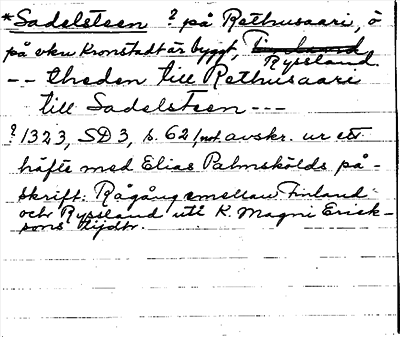 *Sadelsteen ? på Rethusaari, ö
på vken Kronstadt är byggt, Finland
Ryssland
-- theden till Rethusaari
till Sadelsteen ---
? 1323, SD 3, s. 62, not. avskr. ur ett
häfte med Elias Palmskölds på-
skrift: Rågång emellan Finland
och Ryssland uti K. Magni Erick-
sons tijdh.